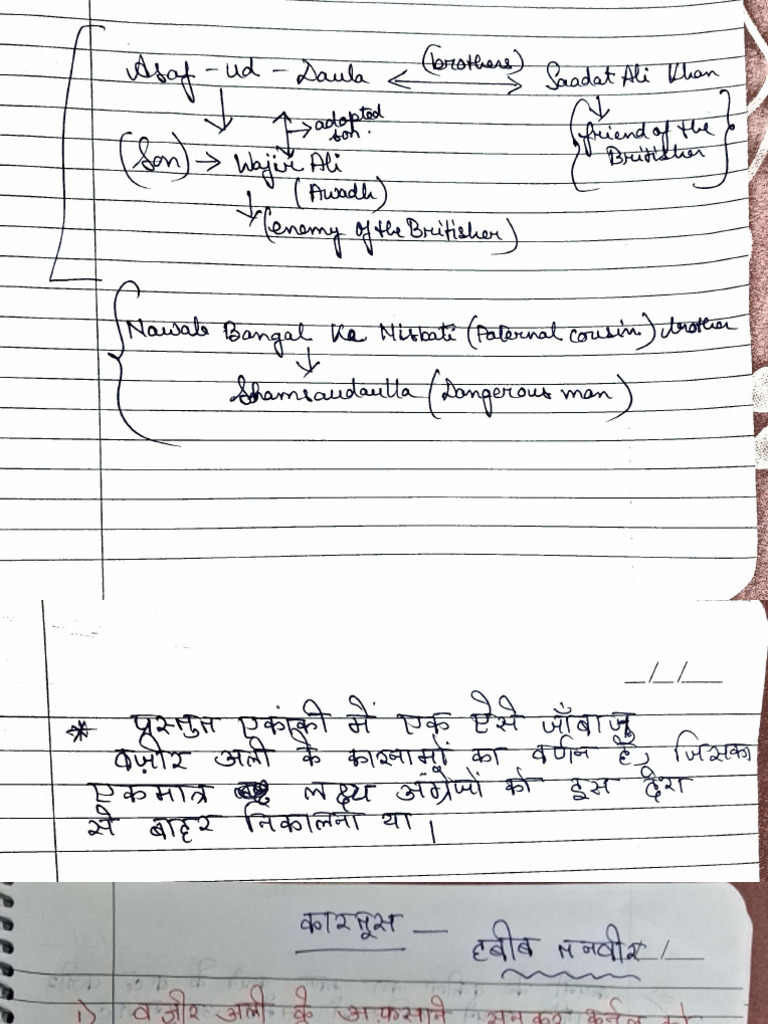 Asaf-ud-Daula ⟷ (brothers) Saadat Ali Khan
adopted son.
{friend of the Britisher}
(Son) → Wajir Ali
(Awadh)
(enemy of the Britisher)
Nawab Bangal Ke Nisbati (Paternal cousin) brother
Shamsaudaulla (Dangerous man)
_/_/_
* प्रस्तुत एकांकी में एक ऐसे जाँबाज़
वज़ीर अली के कारनामों का वर्णन है, जिसका
एकमात्र लक्ष्य अंग्रेजों को इस देश
से बाहर निकालना था।
कारतूस —
हबीब तनवीर
1) वज़ीर अली के अफ़साने सुनकर कर्नल को